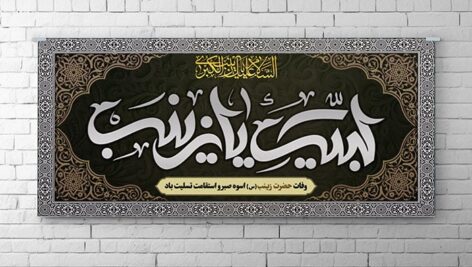 السلام علیک یا زینب الکبری
لبیک یا زینب
وفات حضرت زینب(س) اسوه صبر و استقامت تسلیت باد